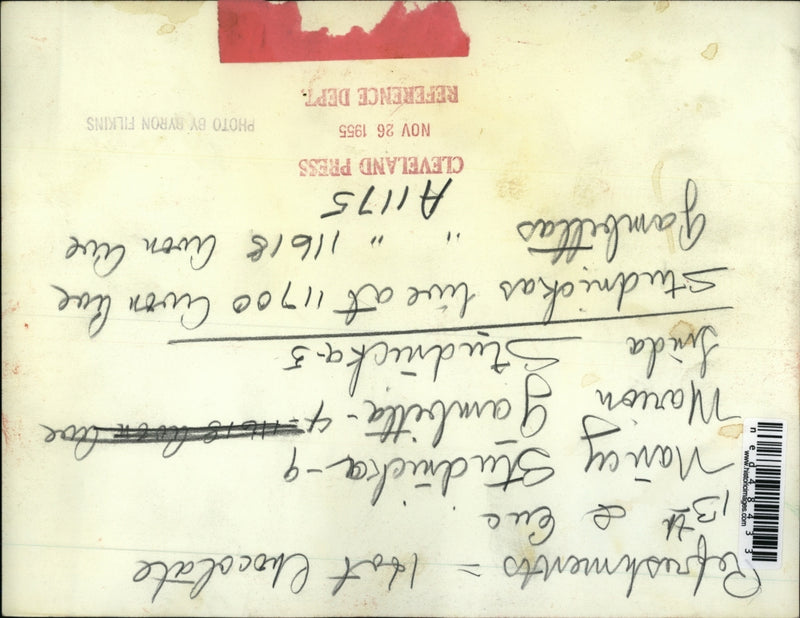 Refreshments = Hot Chocolate
13th & Euc.
Nancy Studnicka - 9
Marion Gambitta - 4 11618 Avon Ave
Linda Studnicka - 5
Studnickas live at 11700 Avon Ave
Gambittas " " 11618 Avon Ave
A1175
CLEVELAND PRESS
NOV 26 1955
REFERENCE DEPT.
PHOTO BY BYRON FILKINS
www.historicimages.com
ned48433